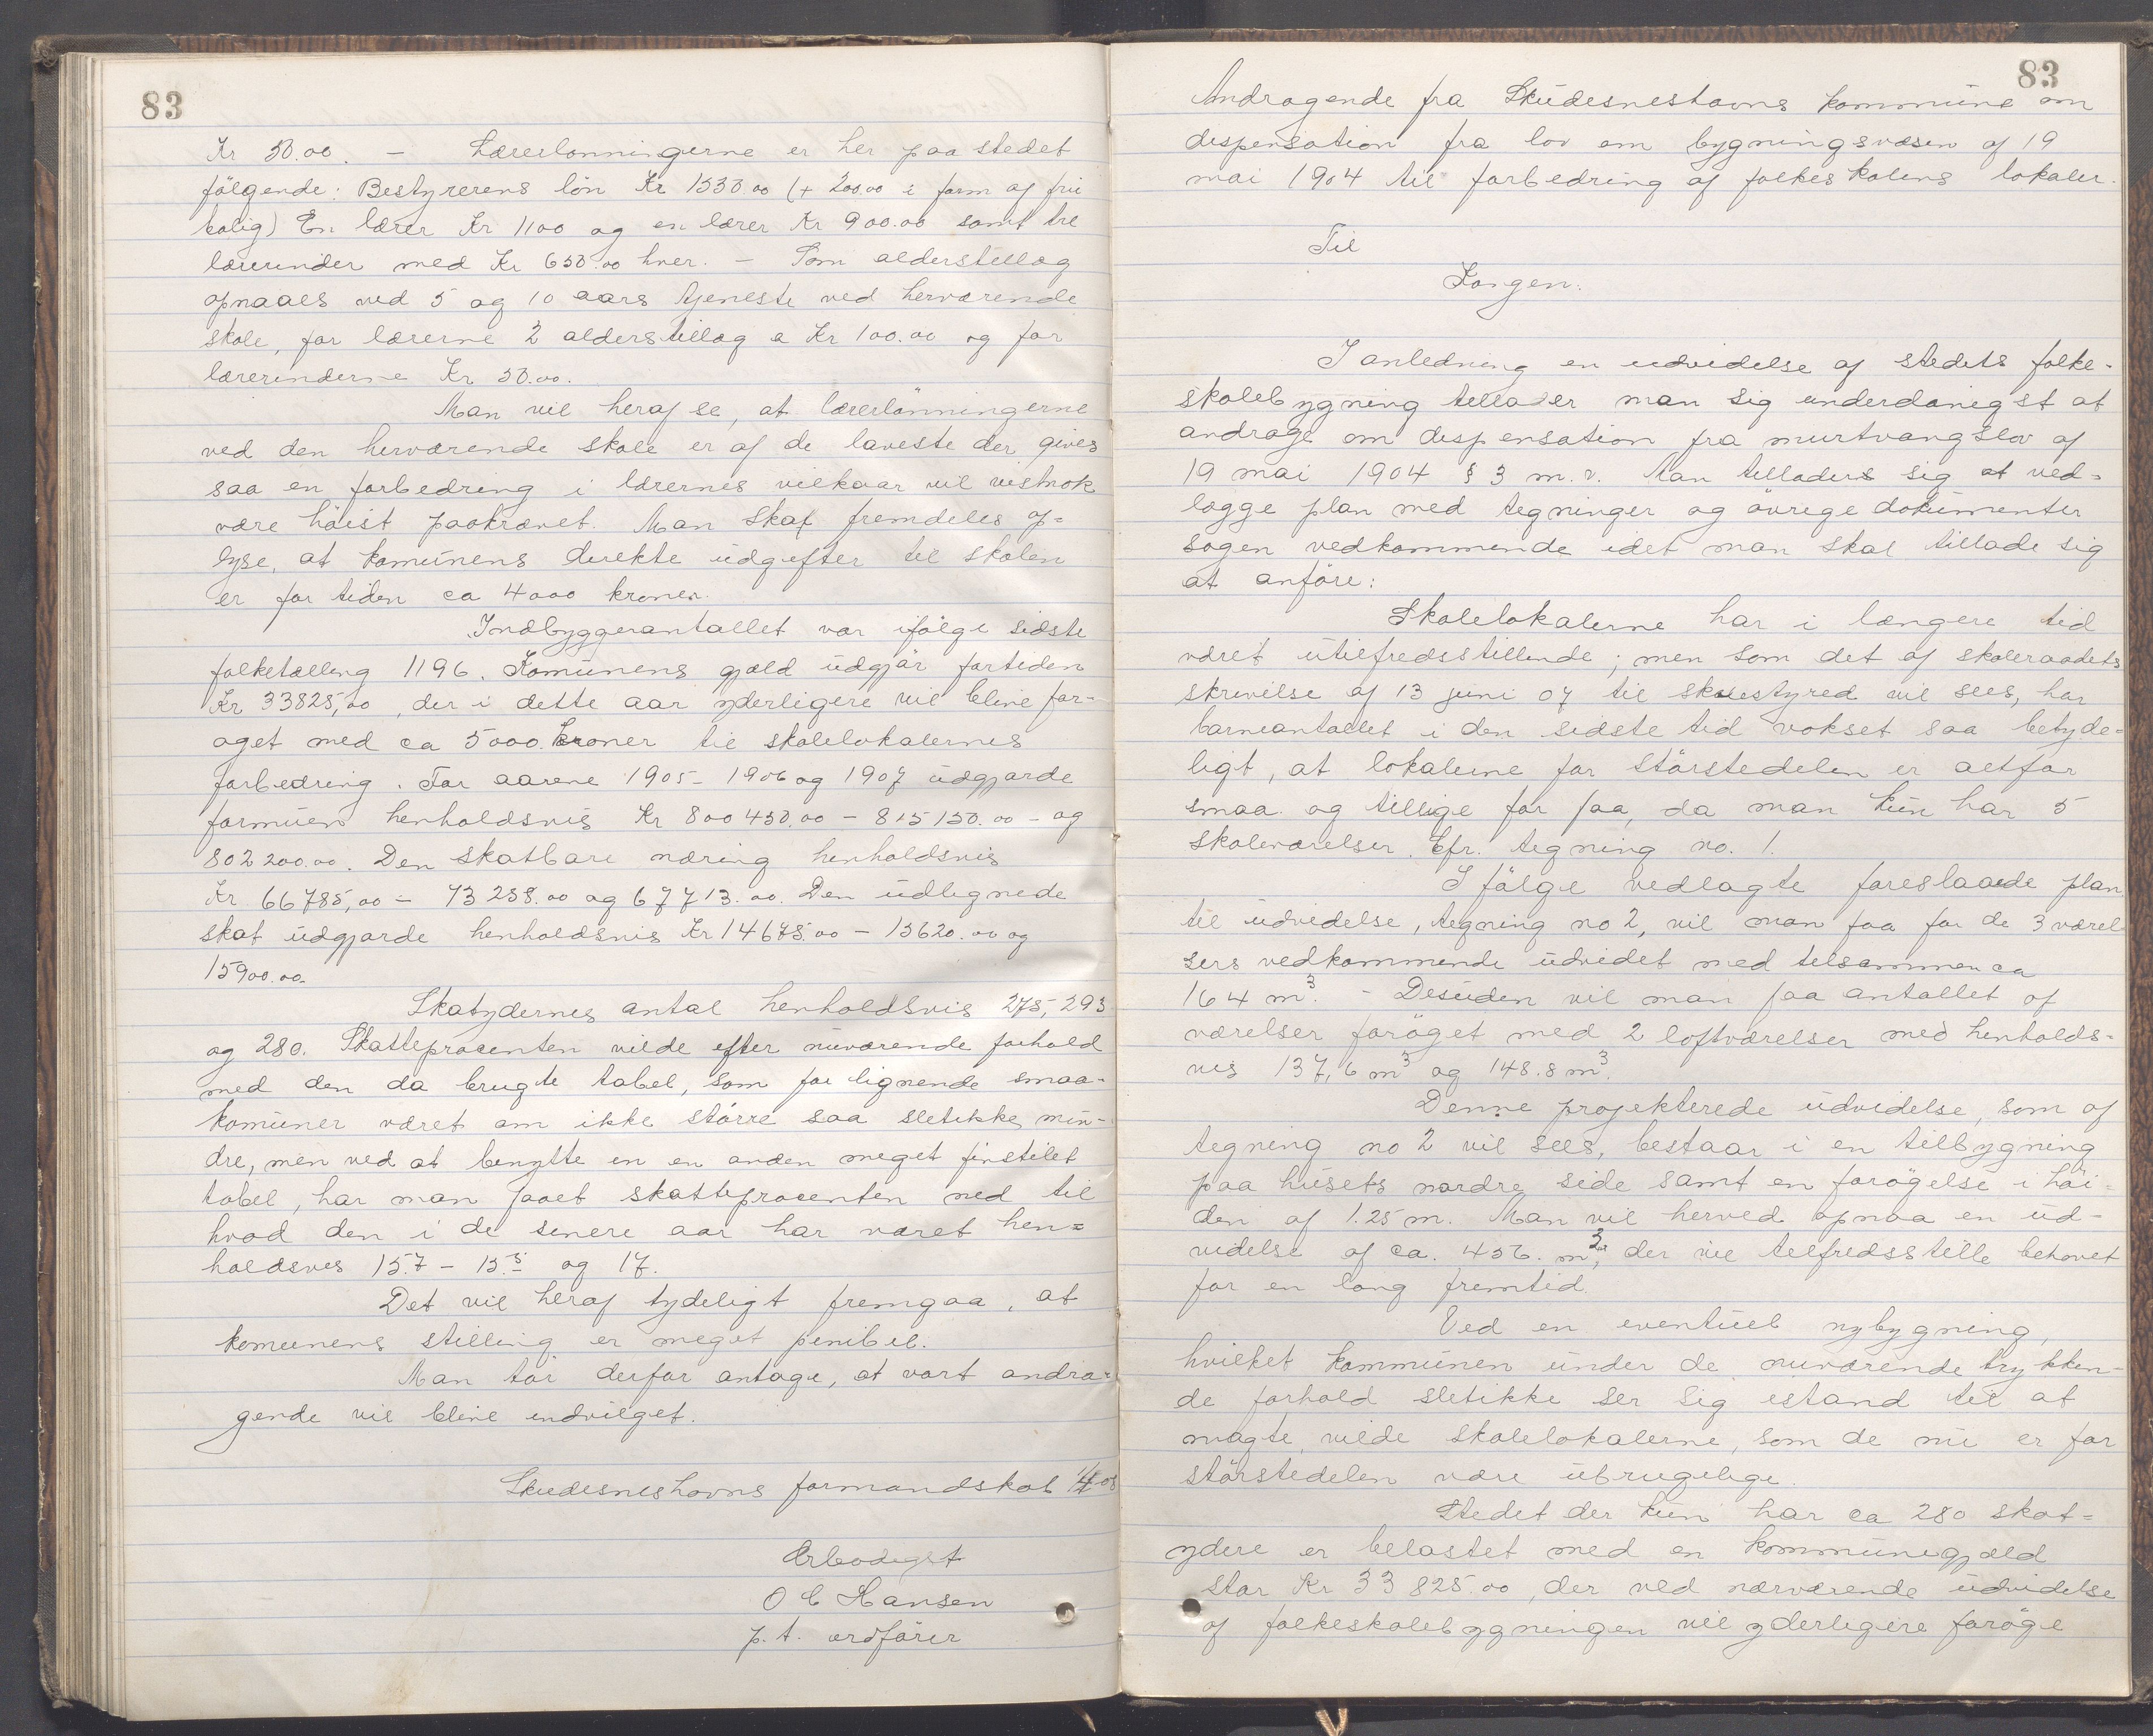 83
Kr 50.00. — Lærerlønningerne er her paa stedet
følgende: Bestyrerens lön Kr 1550 00 (+ 200.00 i form af fri
bolig) En lærer Kr 1100 og en lærer Kr 900.00 samt tre
lærerinder med Kr 650.00 hver. — Som alderstillæg
opnaaes ved 5 og 10 aars tjeneste ved herværende
skole, for lærerne 2 alderstillæg a Kr 100.00 og for
lærerinderne Kr 50.00.
Man vil heraf se, at lærerlönningerne
ved den herværende skole er af de laveste der gives
saa en forbedring i lærernes vilkaar vil vistnok
være höist paakrævet. Man skal fremdeles op=
lyse, at komunens direkte udgifter til skolen
er for tiden ca 4000 kroner.
Indbyggerantallet var ifølge sidste
folketælling 1196. Komunens gjæld udgjör fortiden
Kr 33825,00, der i dette aar yderligere vil blive for=
øget med ca 5000 kroner til skolelokalernes
forbedring. For aarene 1905 - 1906 og 1907 udgjorde
formuen henholdsvis Kr 800450.00 - 815150.00 - og
802200.00. Den skatbare næring henholdsvis
Kr 66785,00 - 73258.00 og 67713.00. Den udlignede
skat udgjorde henholdsvis Kr 14675.00 - 15620.00 og
15900.00.
Skatydernes antal henholdsvis 275, 293
og 280. Skatteprocenten vilde efter nuværende forhold
med den da brugte tabel, som for lignende smaa-
komuner været om ikke större saa sletikke min-
dre, men ved at benytte en en anden meget finstilet
tabel, har man faaet skatteprocenten ned til
hvad den i de senere aar har været hen=
holdsves 15.7 - 15.5 og 17.
Det vil heraf tydeligt fremgaa, at
komunens stilling er meget penibel.
Man tör derfor antage, at vort andra-
gende vil blive indvilget.
Skudesneshavns formandskab 1/4.08
Ærbødigst
O C Hansen
p.t. ordförer
83
Andragende fra Skudesneshavns kommune om
dispensation fra lov om bygningsvæsen af 19
mai 1904 til forbedring af folkeskolens lokaler.
Til
Kongen.
I anledning en udvidelse af stedets folke-
skolebygning tillader man sig underdanigst at
andrage om dispensation fra murtvangslov af
19 mai 1904 § 3 m.v. Man tilladers sig at ved=
lægge plan med tegninger og övrige dokumenter
sagen vedkommende idet man skal tillade sig
at anföre:
Skolelokalerne har i længere tid
været utilfredsstillende; men som det af skoleraadets
skrivelse af 13 juni 07 til skolestyred vil sees, har
barneantallet i den sidste tid vokset saa betyde=
ligt, at lokalerne for störstedelen er altfor
smaa og tillige for faa, da man kun har 5
skoleværelser. Cfr. tegning no. 1.
Ifölge vedlagte foreslaaede plan
til udvidelse, tegning no 2, vil man faa for de 3 værel
sers vedkommende udvidet med tilsammen ca
164 m3. - Desuden vil man faa antallet af
værelser foröget med 2 loftværelser med henholds-
vis 137,6 m3 og 148.8 m3.
Denne projekterede udvidelse, som af
tegning no 2 vil sees, bestaar i en tilbygning
paa husets nordre side samt en forögelse i höi-
den af 1.25 m. Man vil herved opnaa en ud-
videlse af ca. 450. m3, der vil tilfredsstille behovet
for en lang fremtid.
Ved en eventuel nybygning,
hvilket kommunen under de nuværende trykken-
de forhold sletikke ser sig istand til at
magte, vilde skolelokalerne, som de nu er for
störstedelen være ubrugelige.
Stedet der kun har ca 280 skat=
ydere er belastet med en kommunegjæld
stor Kr 33825.00, der ved nærværende udvidelse
af folkeskolebygningen vil yderligere foröge